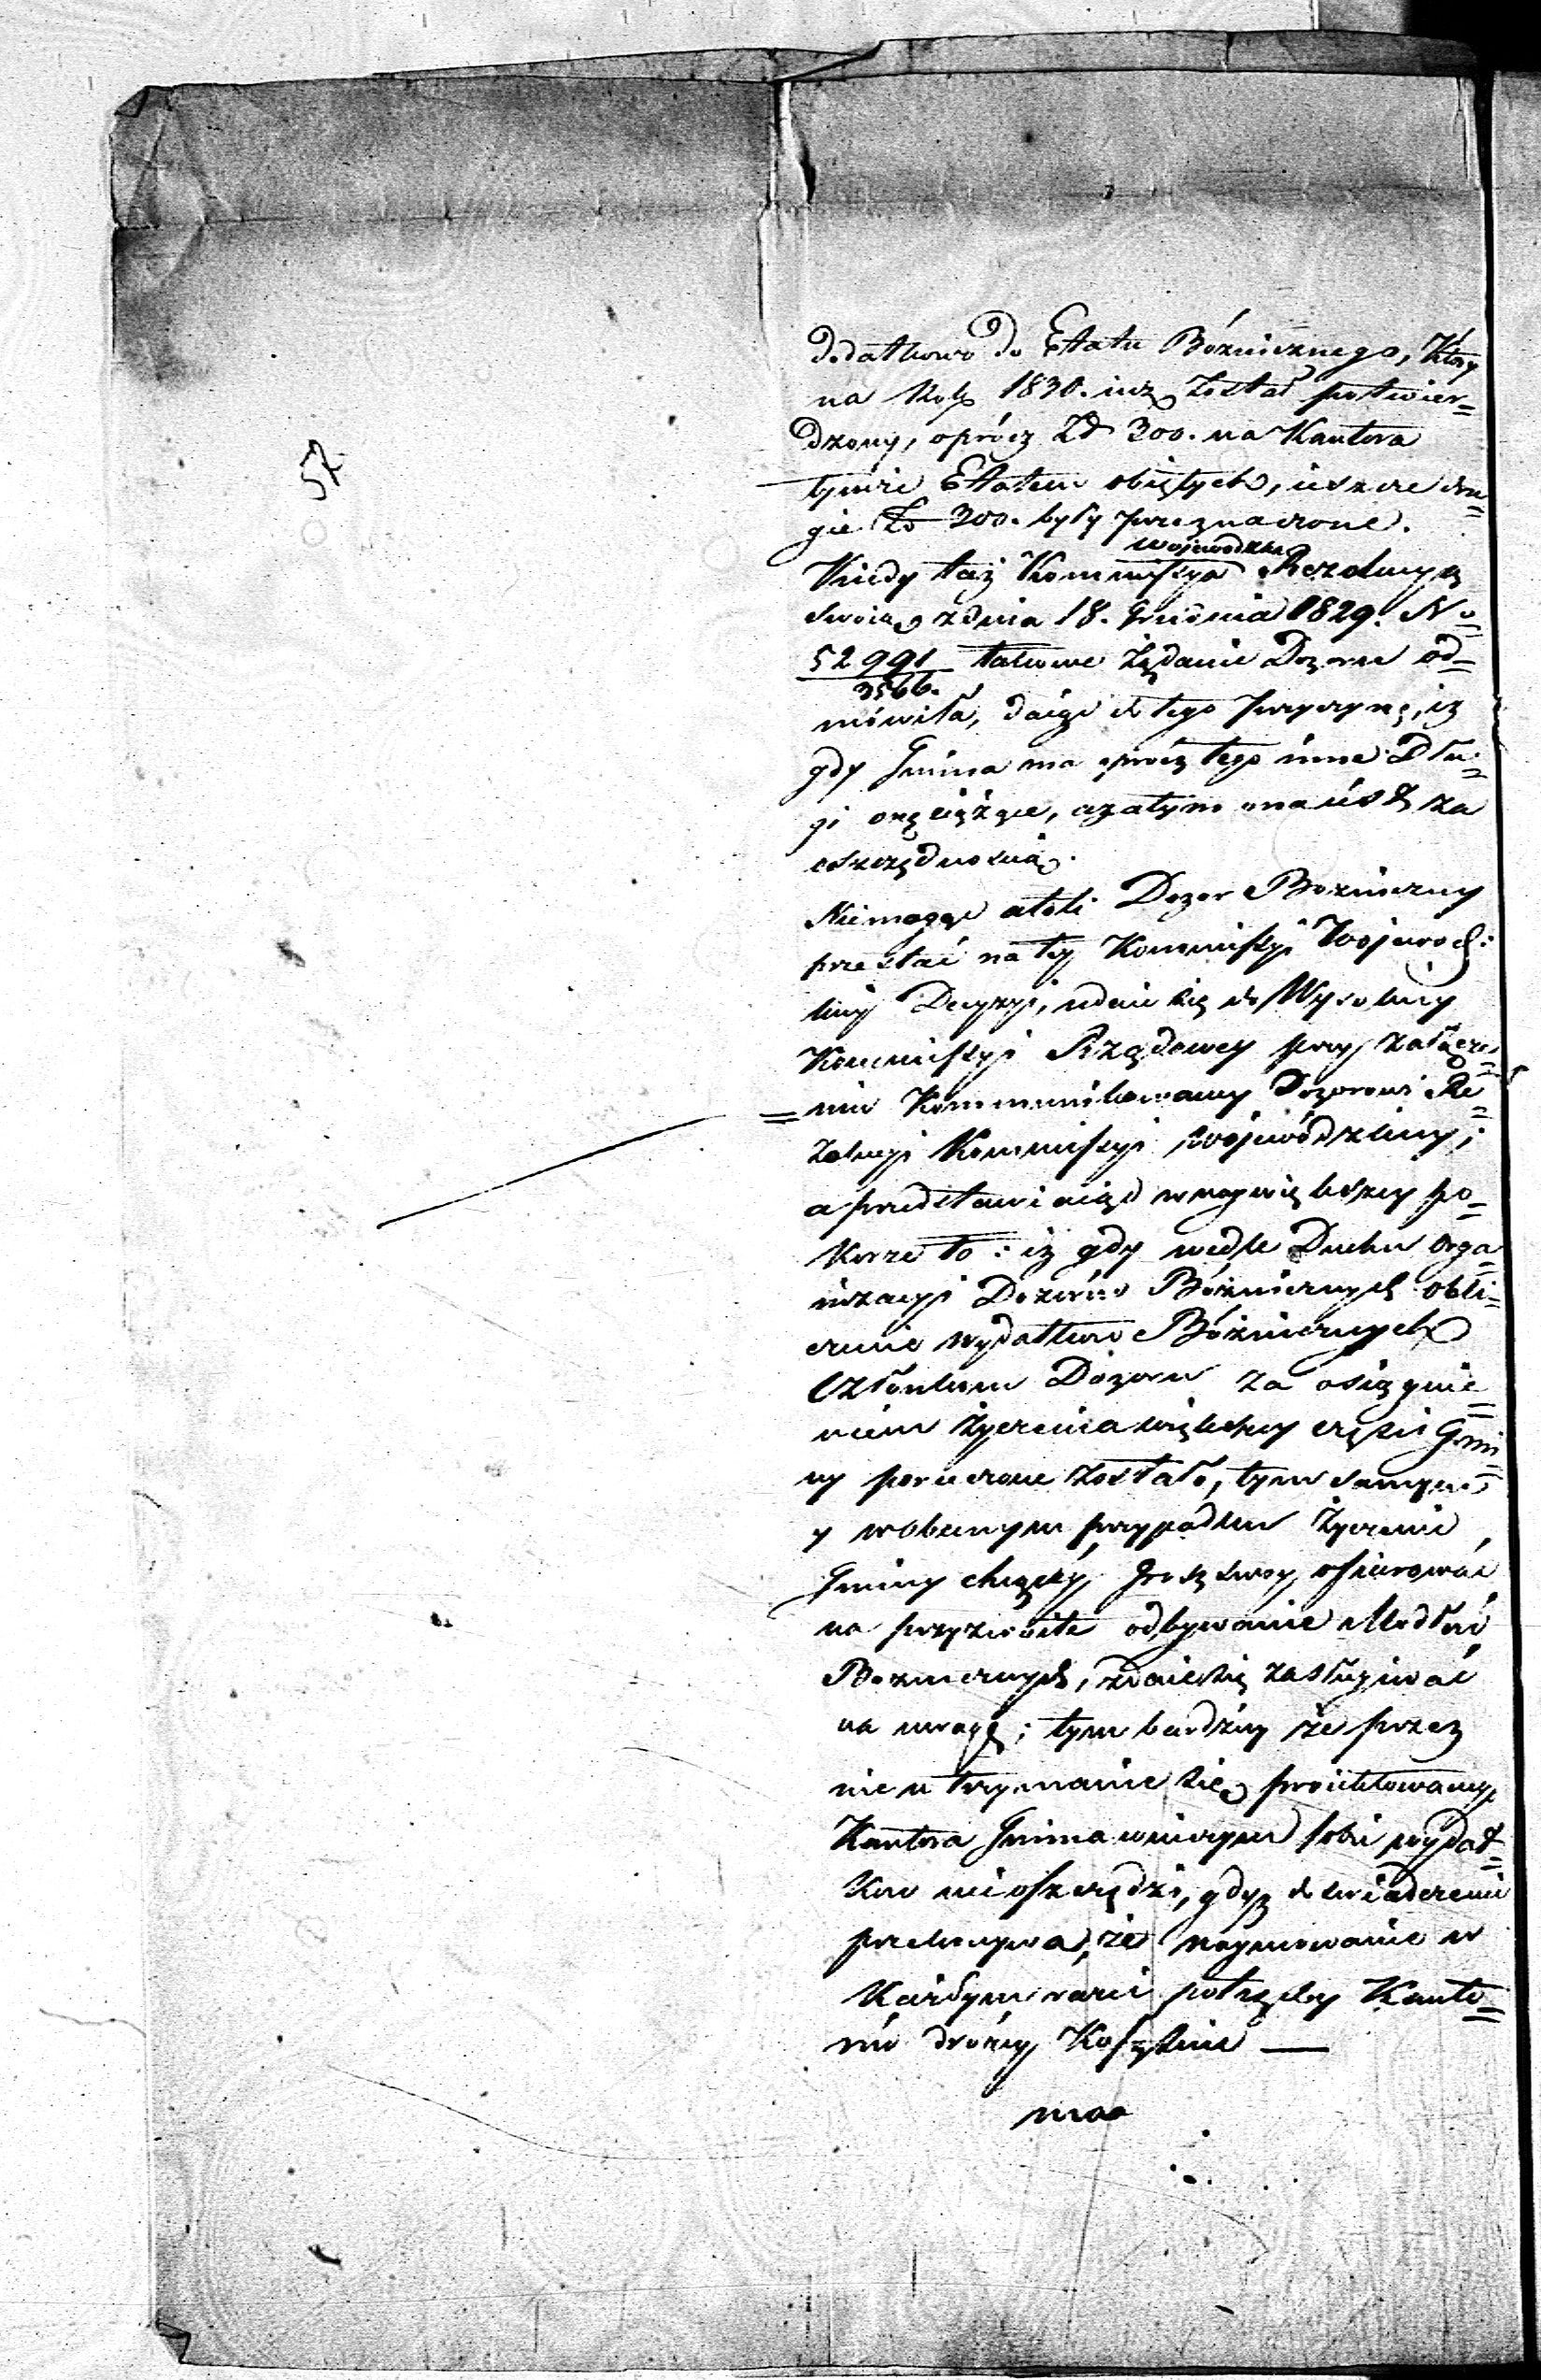 57
dodatkowo do Etatu Bóżnicznego, który
na Rok 1830. iuż został potwier=
dzony, oprócz Zł 300. na Kantora
tymże Etatem obiętych, ieszcze dru=
gie Zł 300. były przeznaczone.
Wojewodzka
Kiedy taż Kommissya Rezolucyą
swoią z dnia 18. Grudnia 1829. No
52991 takowe żądanie Dozoru od=
3566.
mówiła, daiąc do tego przyczynę, iż
gdy Gmina ma oprócz tego inne Dłu=
gi onę ciążące, azatym ona iest za
oszczędnością.
Niemogąc atoli Dozor Bozniczny
przestać na tej Kommissyi Wojewodz:
kiey Decyzyi, udaie się do Wysokiey
Kommissyi Rządowey przy załącze=
niu Kommunikowaney Dozorowi Re=
zolucyi Kommissyi Wojewódzkiey;
a przedstawiaiąc w naywiększey po=
korze to: iż gdy wedle Ducha orga=
nizacyi Dozorów Bóżnicznych obli=
czenie wydatków Bóżnicznych
Członkom Dozoru za osiągnie=
niem życzenia większey części Gmi=
ny poruczone zostało, tym samym
y w obecnym przypadku życzenie
Gminy chcącey grosz swoy ofiarować
na przyzwoite odbywanie Modłów
Bozniczných, zdaie się zasługiwać
na uwagę; tym bardziey że przez
nieutrzymanie się proiektowanego
Kantora Gmina w niczym sobie wydat=
ków nieoszczędzi, gdyż doświadczenie
przekonywa, że naymowanie w
każdym razie potrzeby Kanto=
rów drożey kosztuie —